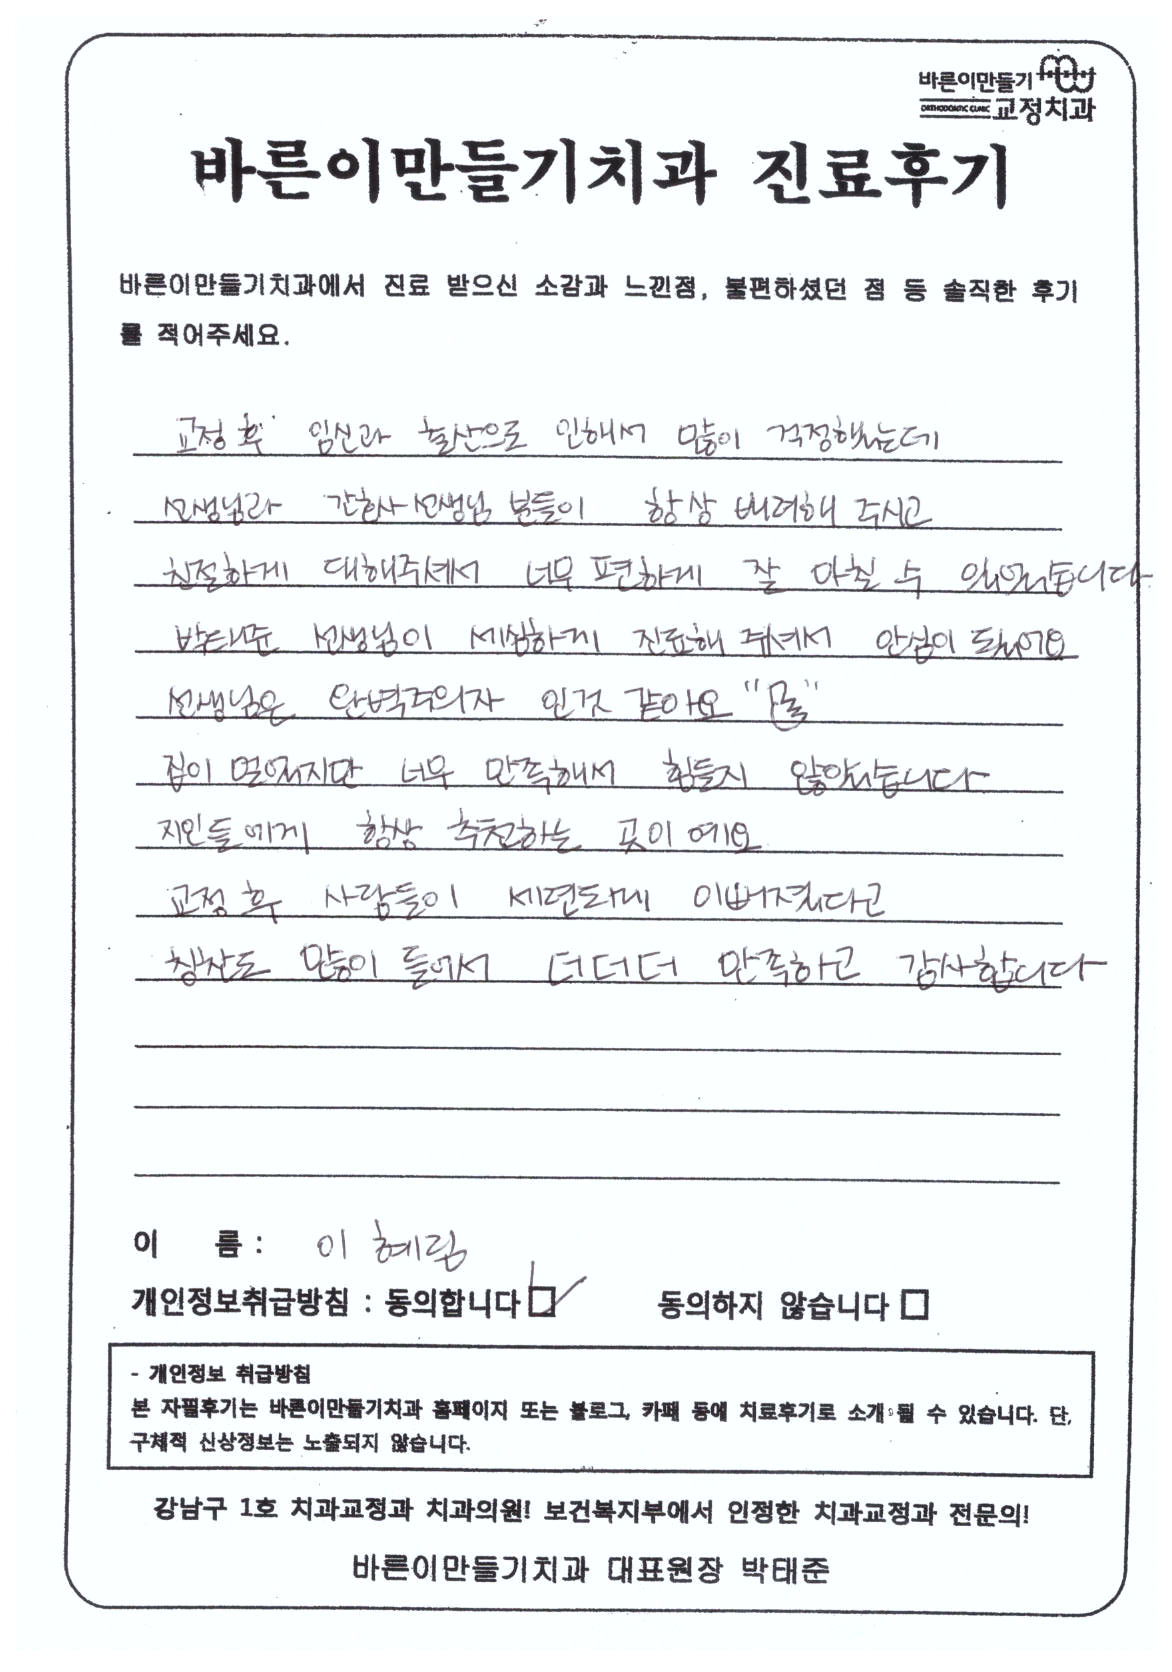 바른이만들기
ORTHODONTIC CLINIC 교정치과
바른이만들기치과 진료후기
바른이만들기치과에서 진료 받으신 소감과 느낀점, 불편하셨던 점 등 솔직한 후기
를 적어주세요.
교정 후 임신과 출산으로 인해서 많이 걱정했는데
선생님과 간호사 선생님 분들이 항상 배려해 주시고
친절하게 대해주셔서 너무 편하게 잘 마칠 수 있었습니다
박태준 선생님이 세심하게 진료해 주셔서 안심이 되었어요
선생님은 완벽주의자 인것 같아요
집이 멀었지만 너무 만족해서 힘들지 않았습니다
지인들에게 항상 추천하는 곳이예요
교정 후 사람들이 세련되게 이뻐졌다고
칭찬도 많이 들어서 더더더 만족하고 감사합니다
이 름 : 이 혜림
개인정보취급방침 : 동의합니다 동의하지 않습니다
- 개인정보 취급방침
본 자필후기는 바른이만들기치과 홈페이지 또는 블로그, 카페 등에 치료후기로 소개 될 수 있습니다. 단,
구체적 신상정보는 노출되지 않습니다.
강남구 1호 치과교정과 치과의원! 보건복지부에서 인정한 치과교정과 전문의!
바른이만들기치과 대표원장 박태준